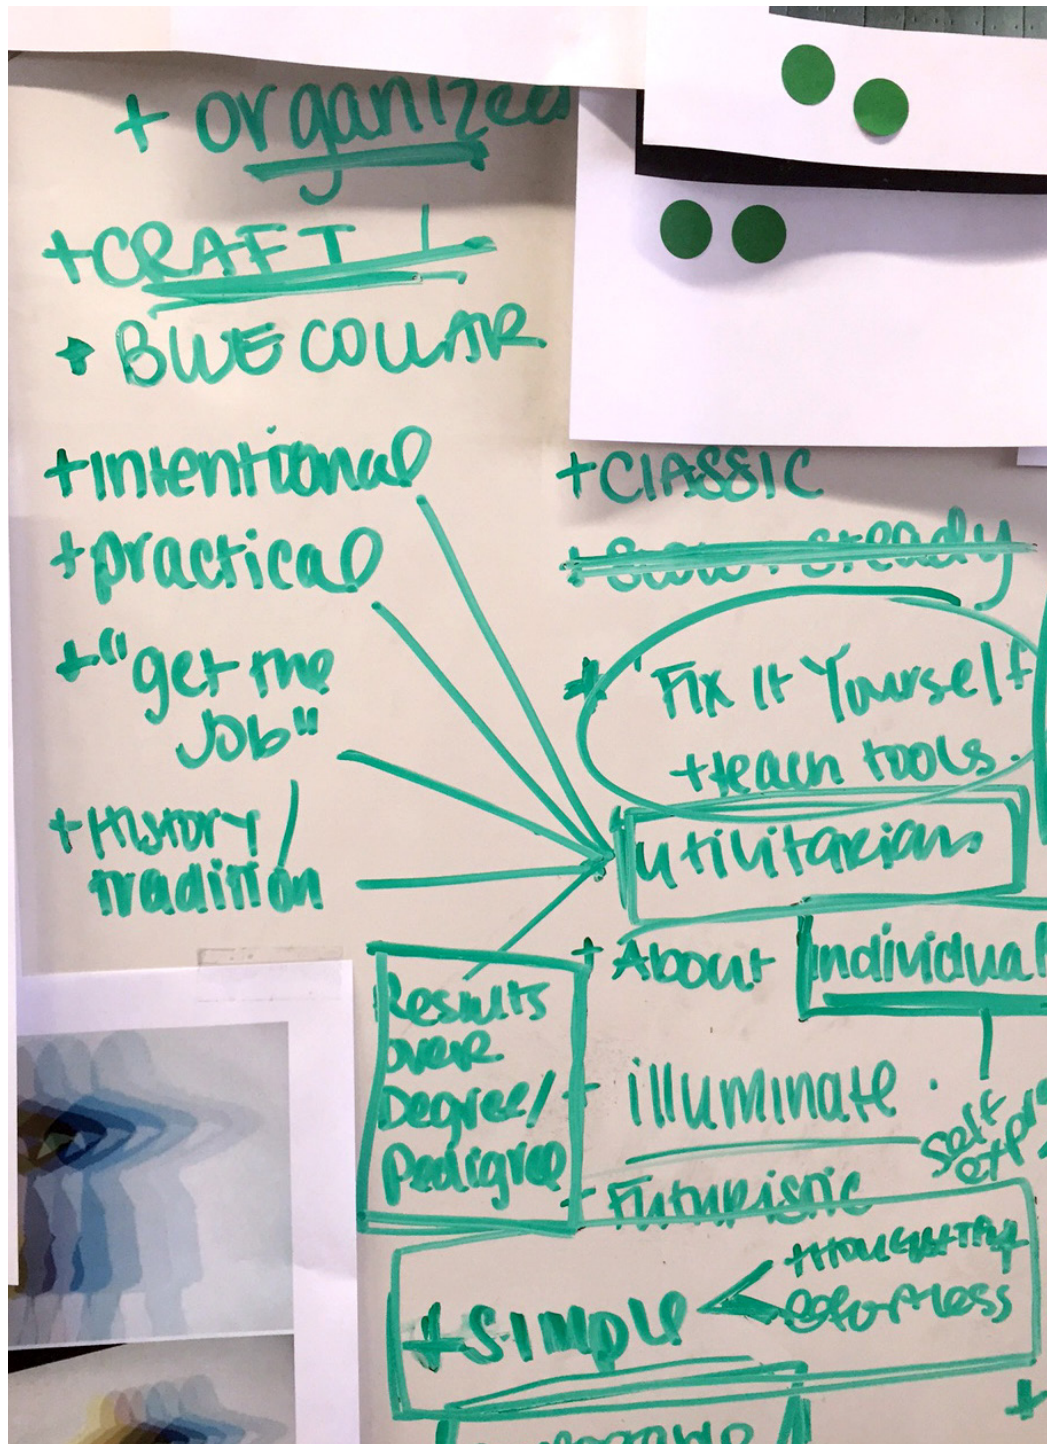 + organized
+ CRAFT
+ BLUE COLLAR
+ intentional
+ practical
+ "get the
Job"
+ History/
tradition
+ CLASSIC
+ Slow + steady
+ "Fix It Yourself
+ teach tools.
utilitarian
+ About Individual
Results
over
Degree/
Pedigree
+ illuminate
self
- Futuristic
+ SIMPLE
effortless
+